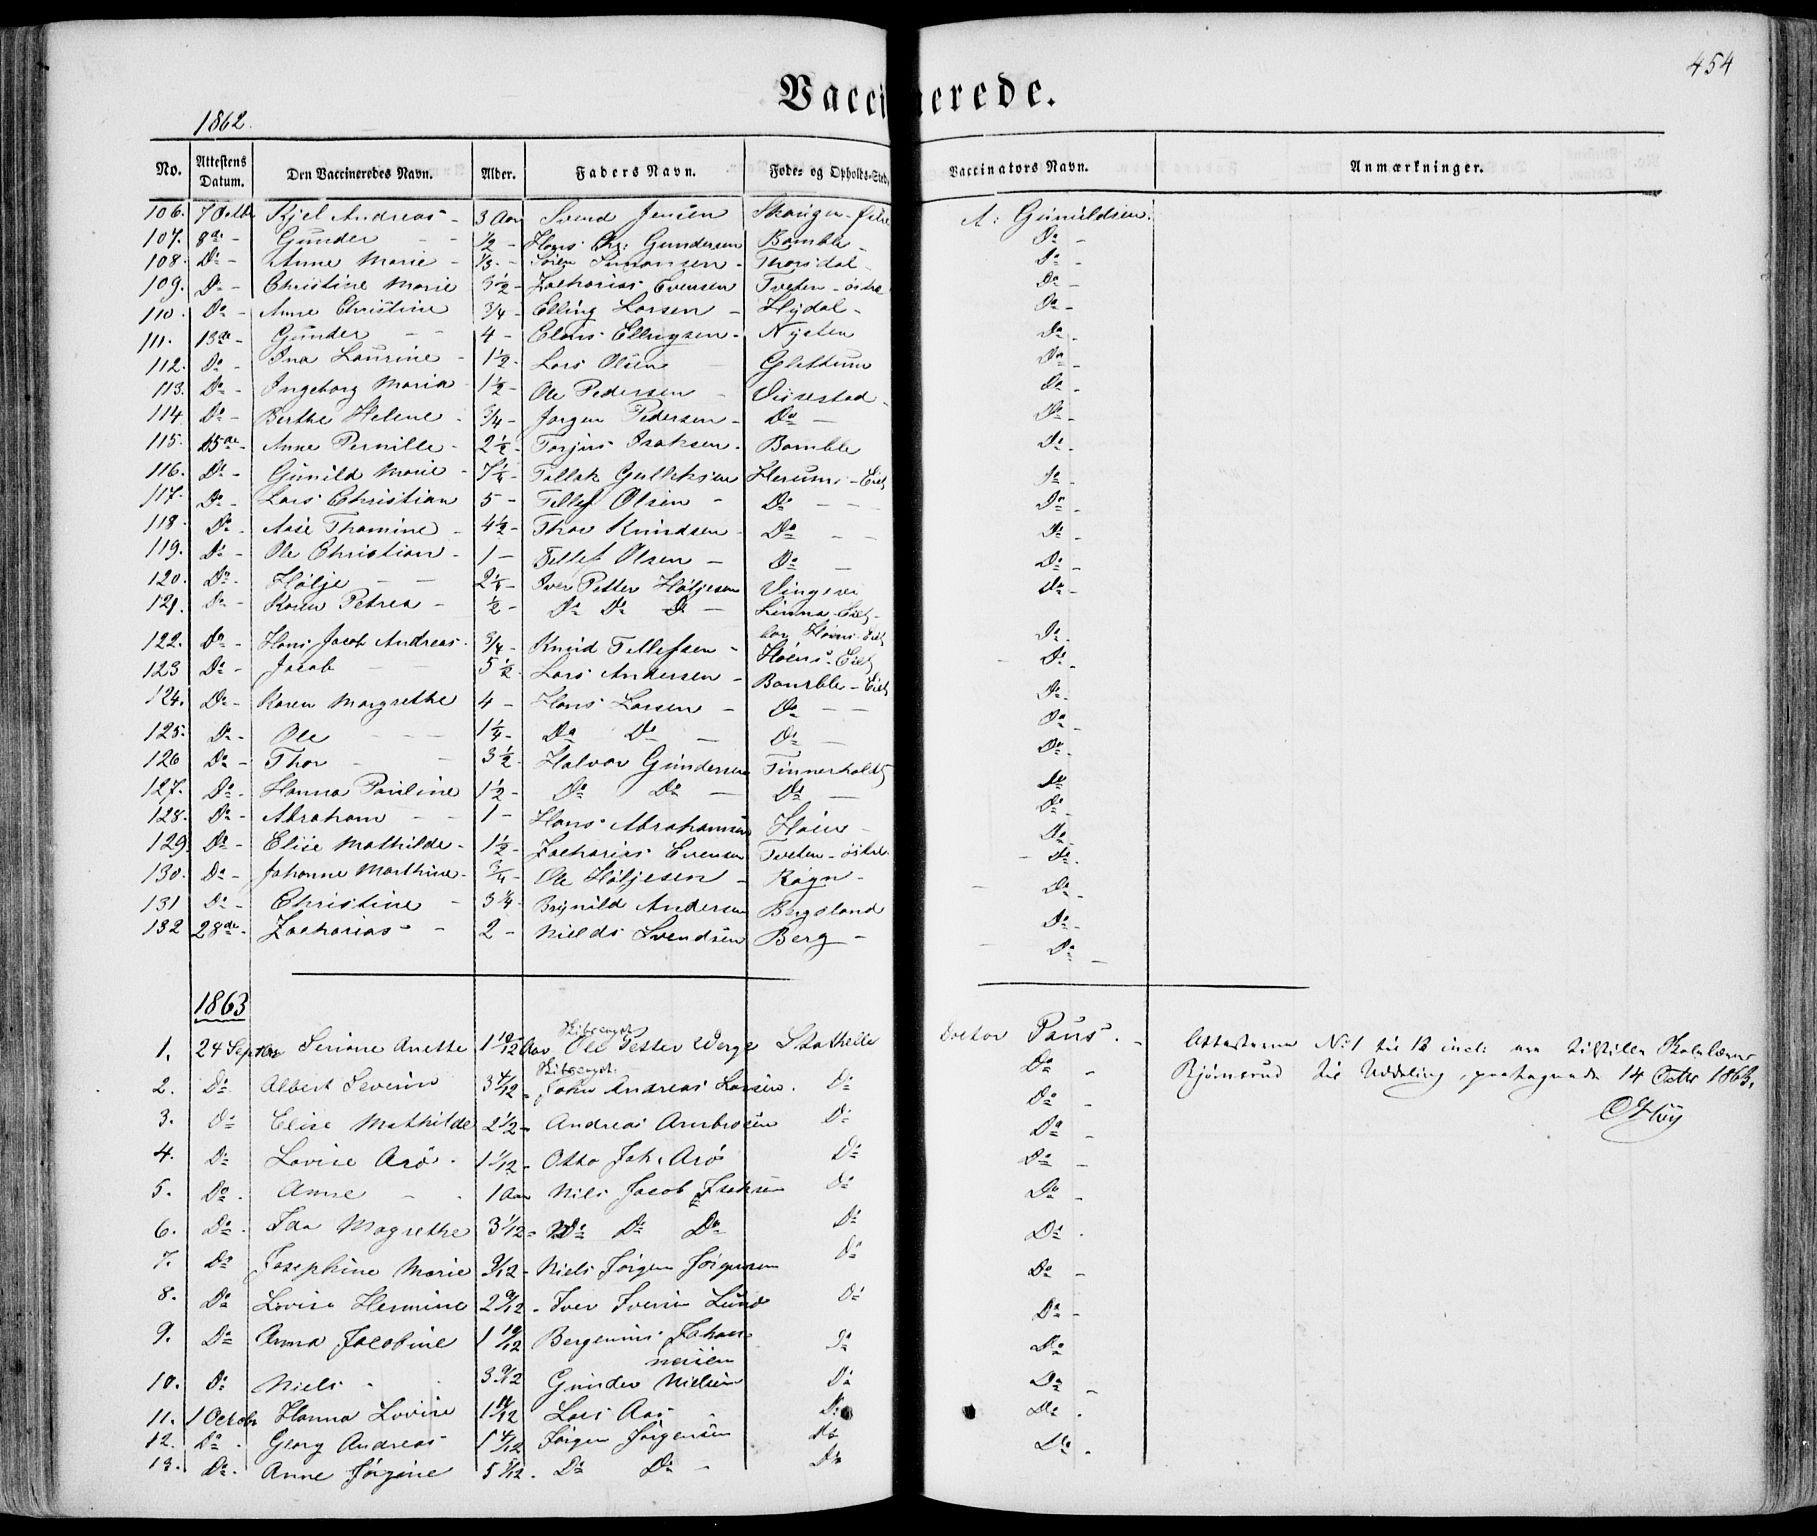 454
Vaccinerede.
1862.
No. Attestens Datum. Den Vaccineredes Navn. Alder. Faders Navn. Føde- og Opholds-Sted. Vaccinators Navn. Anmærkninger.
106. 7 Octbr Kjel Andreas - 3 Aar Svend Jensen A: Gunuldsen.
107. 8de - Gunder - - 1/2 - Hans Chr: Gundersen Bamble - Do -
108. Do - Anne Marie - 1/3 - Sören Simonsen - Thorsdal - Do -
109. Do - Christine Marie 3 1/2 - Zacharias Evensen Tveten - östre Do -
110. Do - Anne Christine 3/4 - Elling Larsen - Hydal - Do -
111. 13de - Gunder - - 4 - Claus Ellingsen - Nysten Do -
112. Do - Ina Laurine - 1 1/2 - Lars Olsen Glittum Do -
113. Do - Ingeborg Maria 1 1/2 - Ole Pedersen - Visestad - Do -
114. Do - Berthe Helene - 3/4 - Jörgen Pedersen - Do - Do -
115. 15de - Anne Pernille - 2 1/2 - Torjus Isaksen - Bamble Do -
116. Do - Gunild Marie - 7 1/4 - Tallak Gulliksen Herum - Eie Do -
117. Do - Lars Christian 5 - Tellef Olsen - Do - - - Do -
118. Do - Aase Thomine - 4 1/2 - Thor Knudsen - Do - - Do -
119. Do - Ole Christian - 1 - Tellef Olsen - Do - Do -
120. Do - Höljе - - 2 1/4 - Iver Petter Höljesen Do -
121. Do - Karen Petrea - 1/2 - Do Do Do -
122. Do - Hans Jacob Andreas - 3/4 - Knud Tellefsen - Do -
123 Do - Jacob - - 5 1/2 - Lars Andersen - Bamble - Eie Do -
124. Do - Karen Margrethe 4 - Hans Larsen - Do - - Do -
125. Do - Ole - - - 1 1/4 - Do Do - Do - Do -
126 Do - Thor - - 3 1/2 - Halvor Gundersen Tinnerholdt Do -
127. Do - Hanna Pauline 1 1/2 - Do Do - Do - Do -
128. Do - Abraham - - 1 - Hans Abrahamsen Höen - Do -
129. Do - Elise Mathilde - 1 1/2 - Zacharias Evensen Tveten - östre - Do -
130. Do - Johanne Marthine - 3/4 - Ole Höljesen - Rögn - - Do -
131 Do - Christine - 3 1/4 - Brynild Andersen Bergsland Do -
132 28de - Zacharias - 2 - Nields Svendsen Berg - - Do -
1863
1. 24 Septbr Serine Anette 1 10/12 Aar Ole Petter Werge Stathelle Doctor Paus. - Attesterne No 1 til 12 incl:
2. Do Albert Severin 3 4/12 - John Andreas Larsen. Do Do - Bjørnerud til Uddeling, 14 Octbr 1863.
3. Do Elise Mathilde 2 1/2 - Andreas Ambrosen Do Do -
4. Do Lovise Arö - 1 1/12 - Otto Joh. Arö Do Do -
5. Do - Anne - - 1 Aar Niels Jacob Isaksen Do Do -
6. Do - Ida Magrethe 3 1/12 - Do Do Do Do Do -
7. Do Josephine Marie 9/12 - Niels Jörgen Jörgensen Do Do -
8. Do Lovise Hermine 2 9/12 - Iver Iversen Lund Do Do -
9. Do Anna Jacobine 1 10/12 Bergenius Johannesen Do Do -
10. Do Niels - - 3 9/12 Gunder Nielsen Do Do -
11. 1 Octobr Hanna Lovise 1 11/12 Lars Aas - Do Do -
12. Do - Georg Andreas 1 4/12 Jörgen Jörgensen Do Do -
13. Do - Anne Jörgine 5 5/12 - Do Do - Do